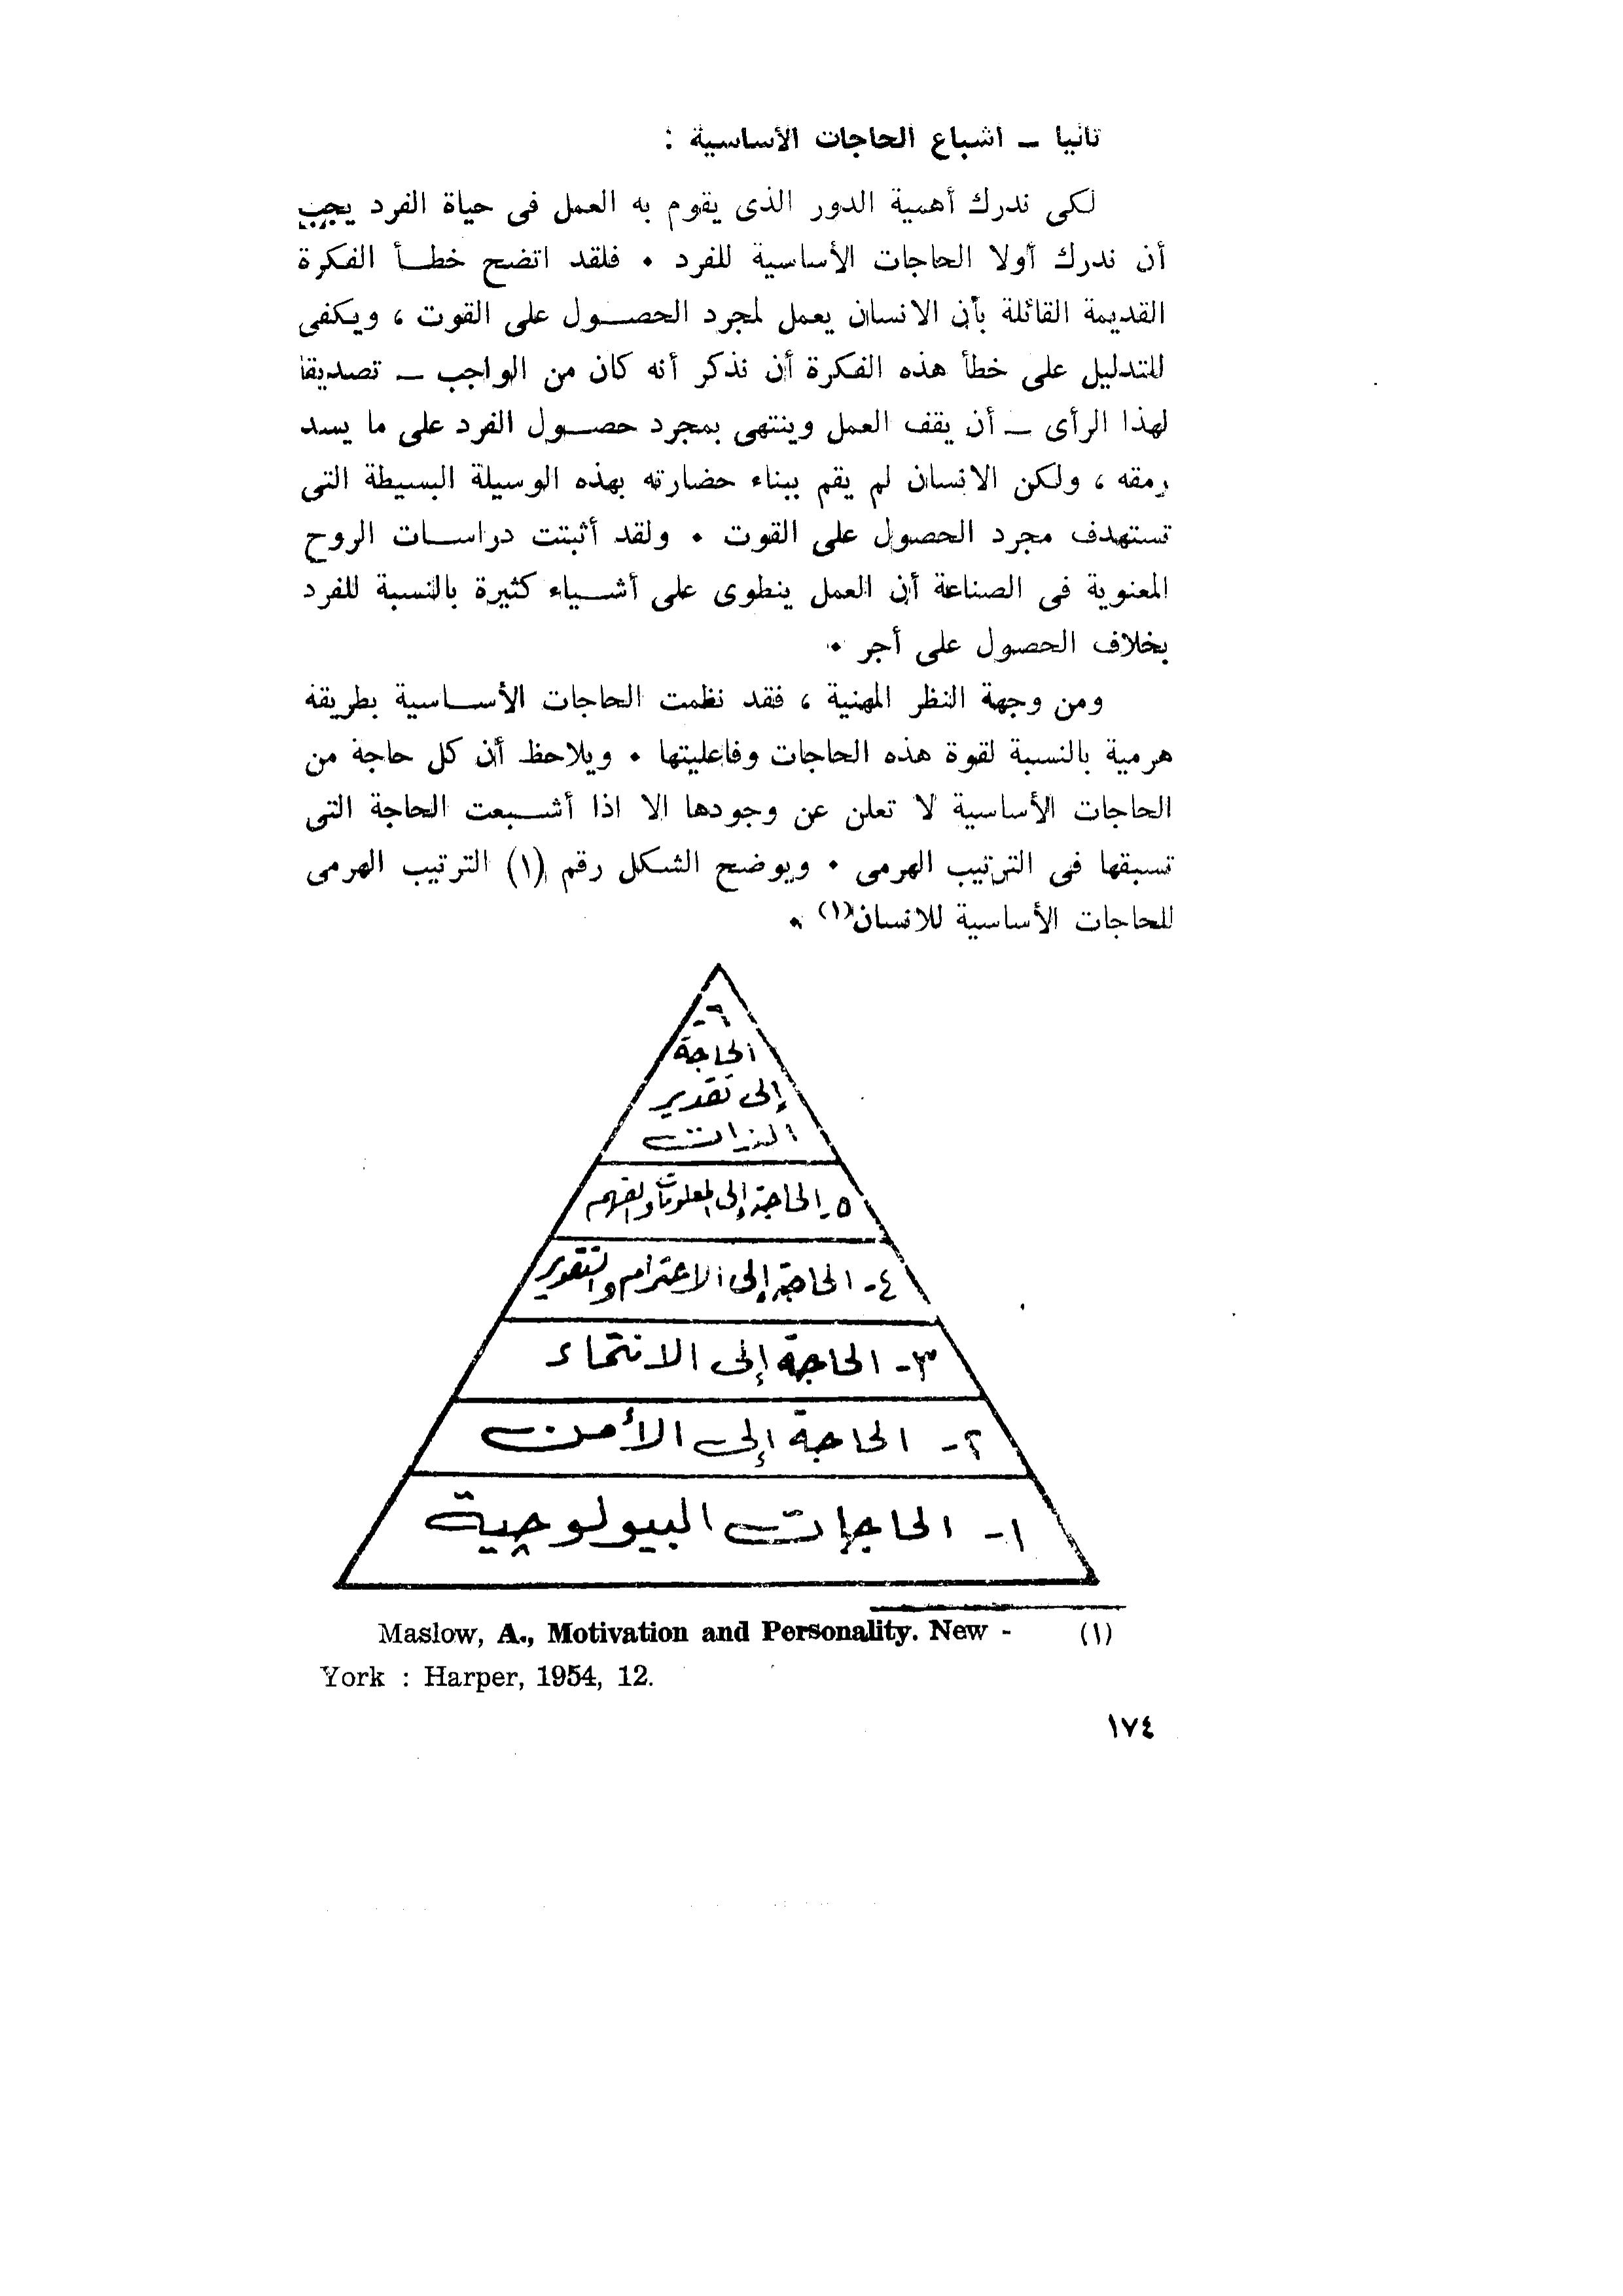 ثانيا ــ اشباع الحاجات الأساسية :
لكى ندرك أهمية الدور الذى يقوم به العمل فى حياة الفرد يجب
أن ندرك أولا الحاجات الأساسية للفرد ٠ فلقد اتضح خطأ الفكرة
القديمة القائلة بأن الانسان يعمل لمجرد الحصول على القوت ، ويكفى
للتدليل على خطأ هذه الفكرة أن نذكر أنه كان من الواجب ــ تصديقا
لهذا الرأى ــ أن يقف العمل وينتهى بمجرد حصول الفرد على ما يسد
رمقه ، ولكن الانسان لم يقم ببناء حضارته بهذه الوسيلة البسيطة التى
تستهدف مجرد الحصول على القوت ٠ ولقد أثبتت دراسات الروح
المعنوية فى الصناعة أن العمل ينطوى على أشياء كثيرة بالنسبة للفرد
بخلاف الحصول على أجر ٠
ومن وجهة النظر المهنية ، فقد نظمت الحاجات الأساسية بطريقة
هرمية بالنسبة لقوة هذه الحاجات وفاعليتها ٠ ويلاحظ أن كل حاجة من
الحاجات الأساسية لا تعلن عن وجودها الا اذا أشبعت الحاجة التى
تسبقها فى الترتيب الهرمى ٠ ويوضح الشكل رقم (١) الترتيب الهرمى
للحاجات الأساسية للانسان(١) ٠
٦-
الحاجة
إلى تقدير
الذات
٥- الحاجة إلى المعلومات والفهم
٤- الحاجة إلى الاحترام والتقدير
٣- الحاجة إلى الانتماء
٢- الحاجة إلى الأمن
١- الحاجات البيولوجية
(١) Maslow, A., Motivation and Personality. New -
York : Harper, 1954, 12.
١٧٤